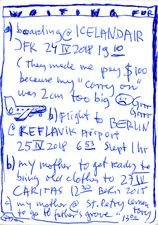 WAITING FOR
a) boarding @ ICELANDAIR
JFK 24 IV 2018 19 10
(they made me pay $100
because my "carry on"
was 2cm too big)
Grrr
b) flight to BERLIN
@ KEFLAVIK airport
25 IV 2018 6 53 slept 1 hr
b) my mother to get ready to
bring old clothes to 27 IV
CARITAS 12 30
c) my mother @ St. Petry cemetery
to go to father's grove "15 02"